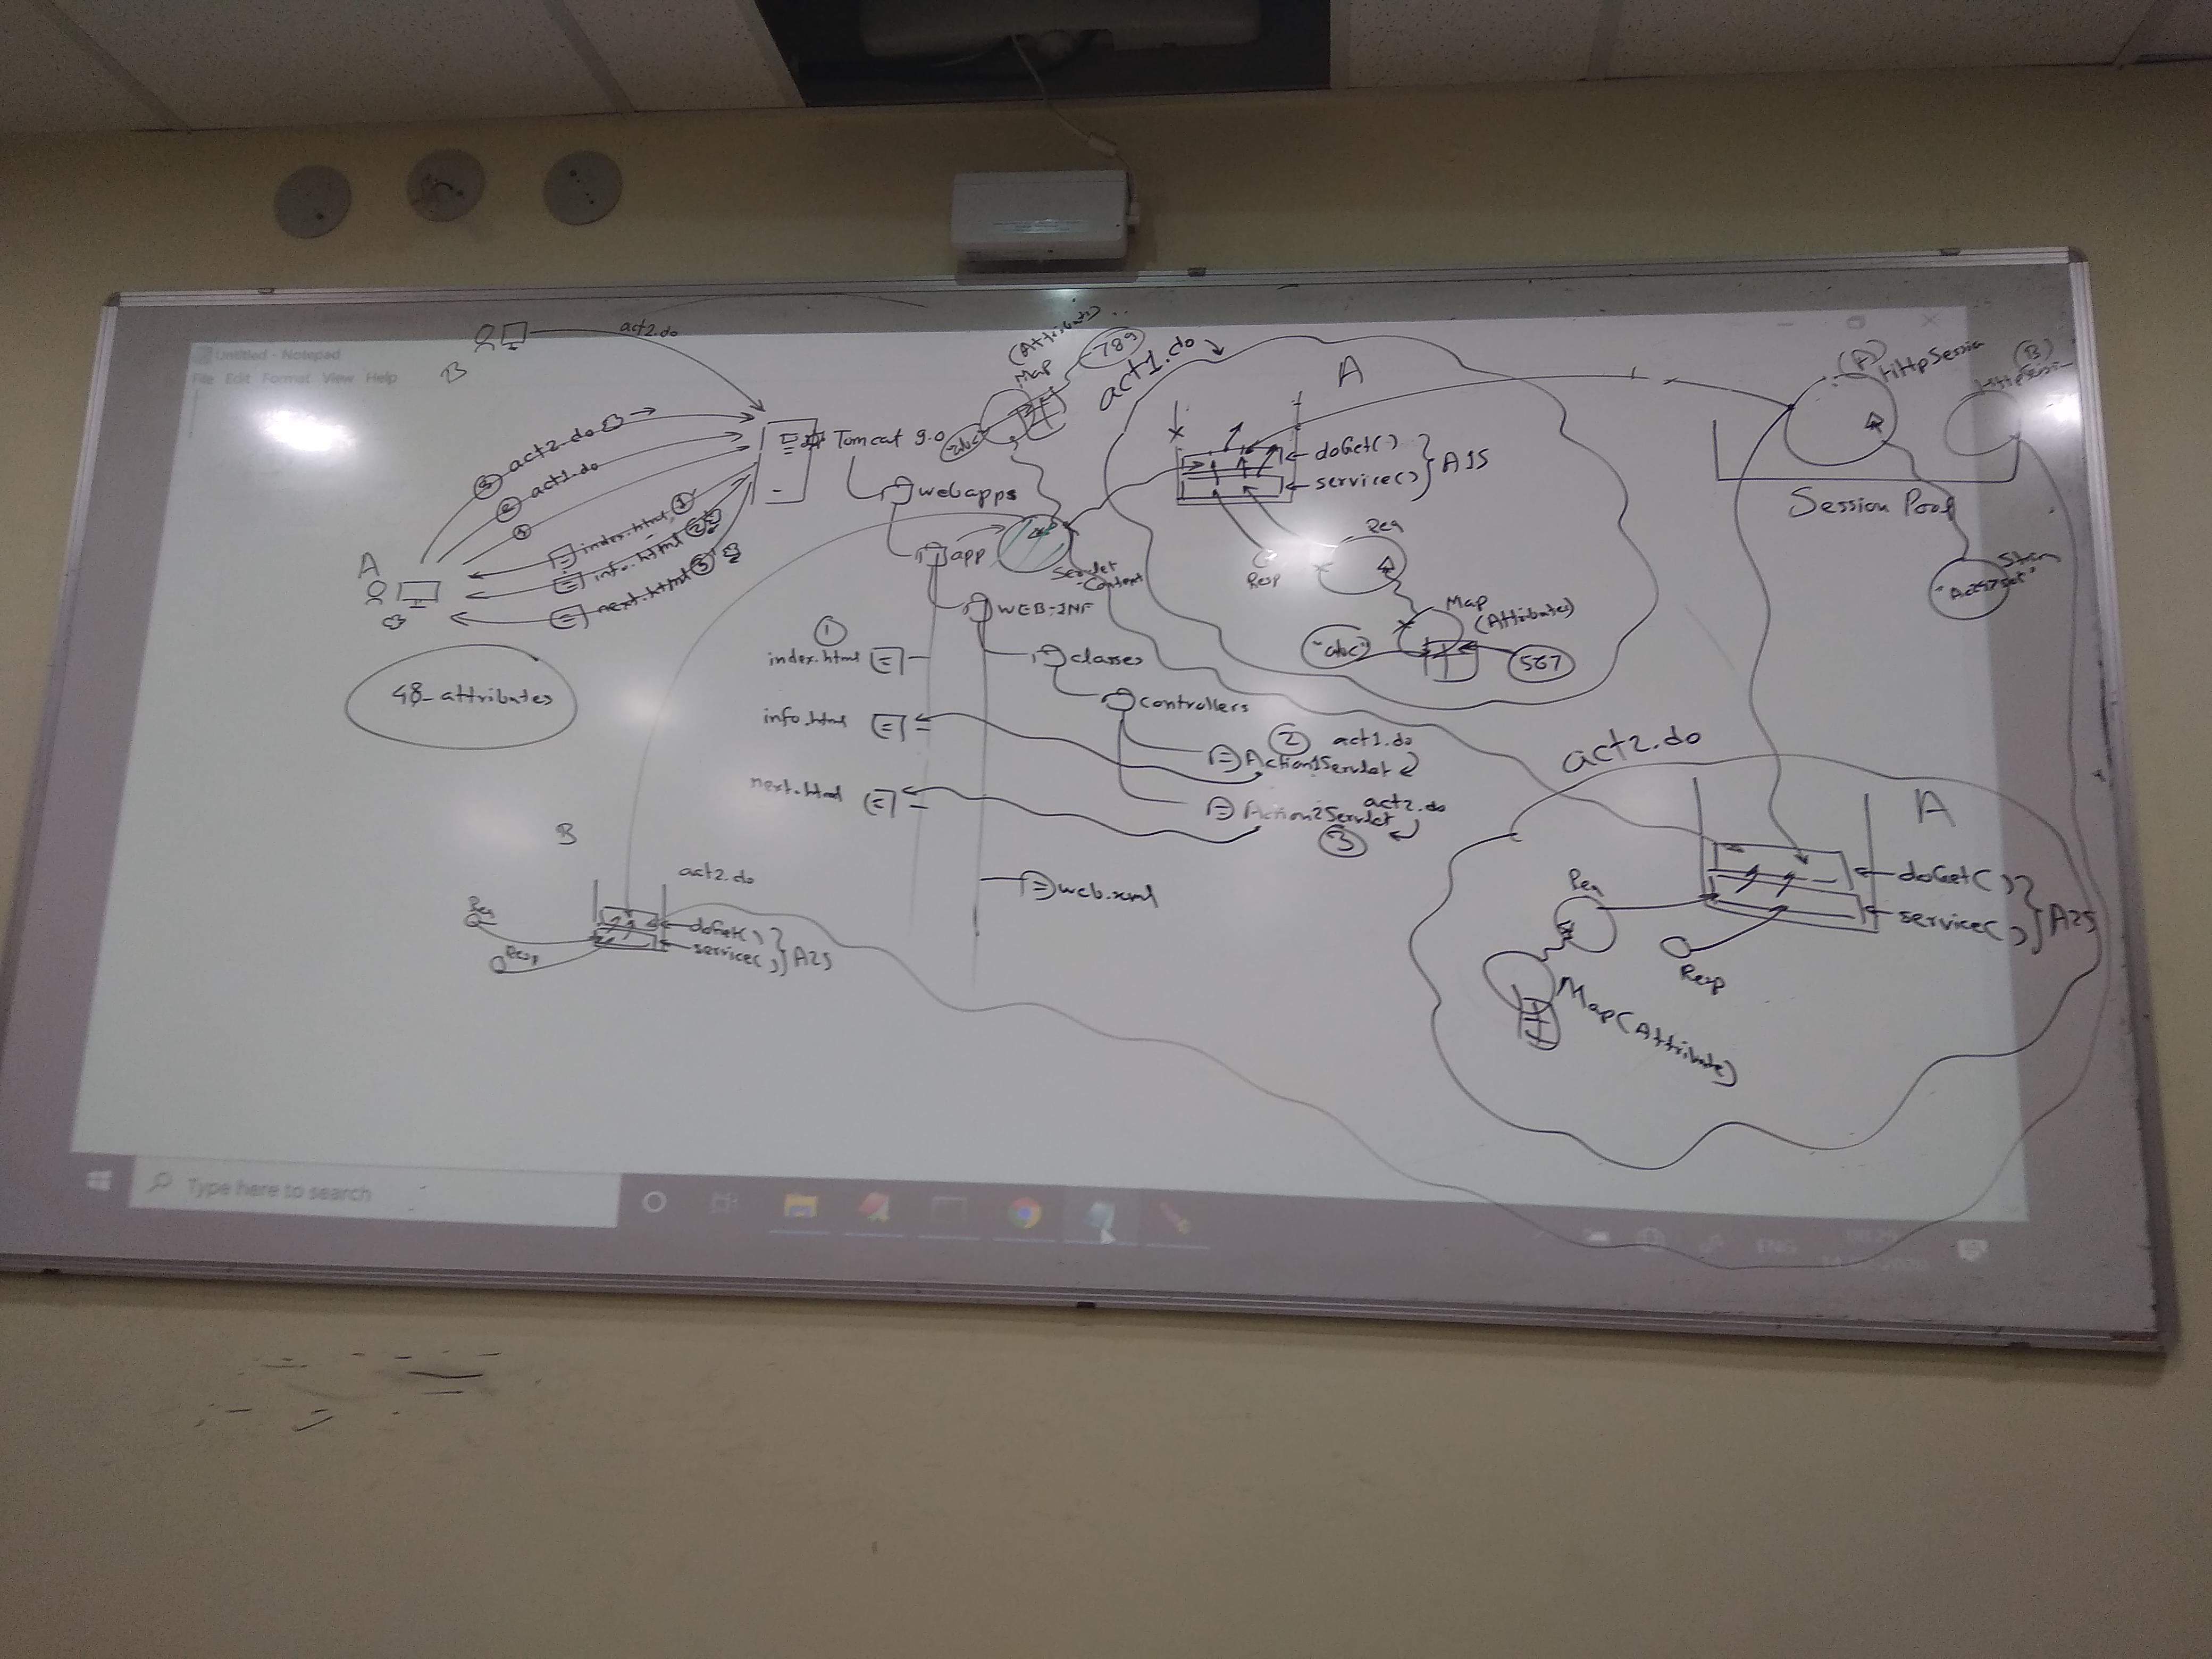 Untitled - Notepad
File Edit Format View Help
B
act2.do
3 act2.do
2 act1.do
1
index.html 1
info.html 2
next.html 3
A
48_attributes
Tomcat 9.0
webapps
app
WEB-INF
classes
controllers
1
index.html
info.html
next.html
2 act1.do
Action1Servlet
act2.do
Action2Servlet
3
web.xml
(Attributes)
Map
"abc"
789
Servlet
Context
act1.do
A
doGet()
service()
A1S
Req
Resp
Map
(Attributes)
"abc"
567
(A)
HttpSession
(B)
Session Pool
act2.do
A
doGet()
service()
A2S
Req
Resp
Map(Attribute)
B
act2.do
Req
Resp
doGet()
service()
A2S
Type here to search
ENG